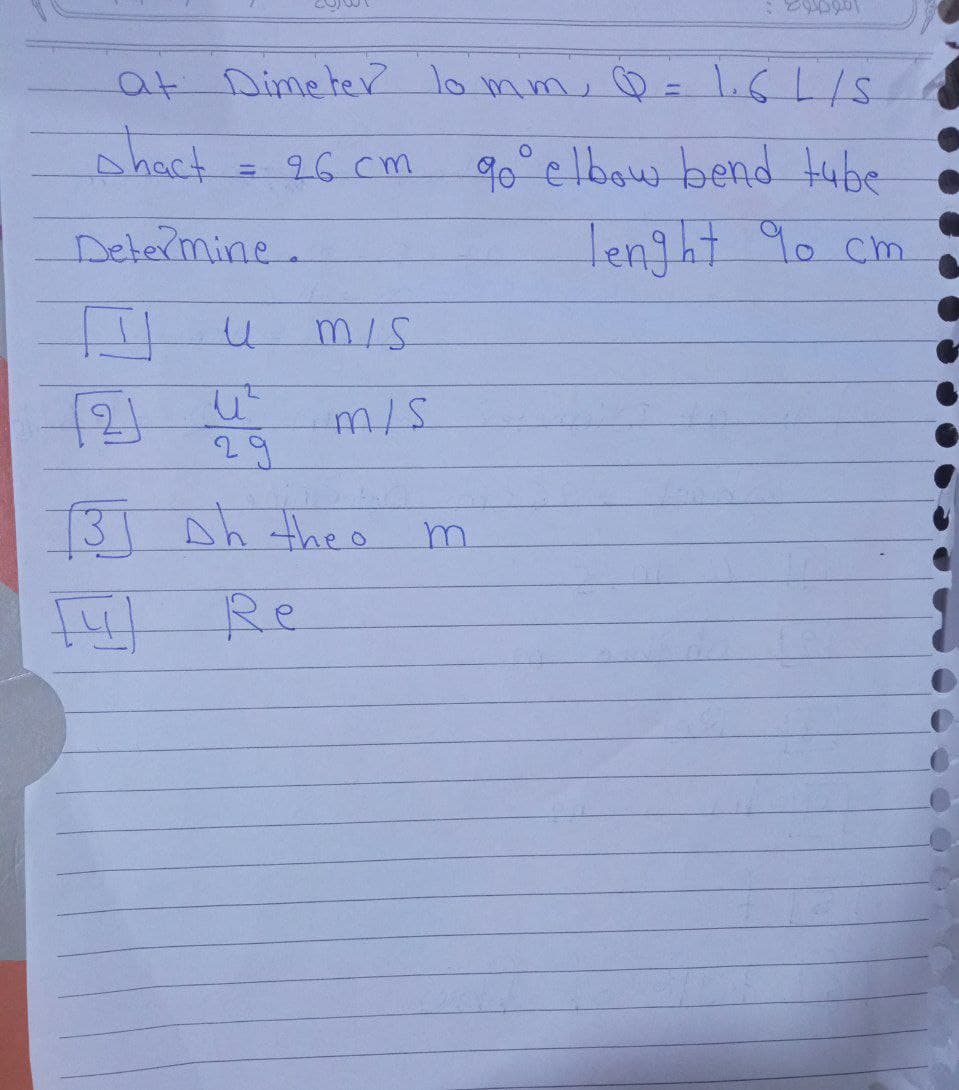 at Dimeter 10 mm, Q = 1.6 L/S
Δhact = 26 cm 90° elbow bend tube
Determine. lenght 90 cm
[1] u m/S
[2] u²/2g m/S
[3] Δh theo m
[4] Re